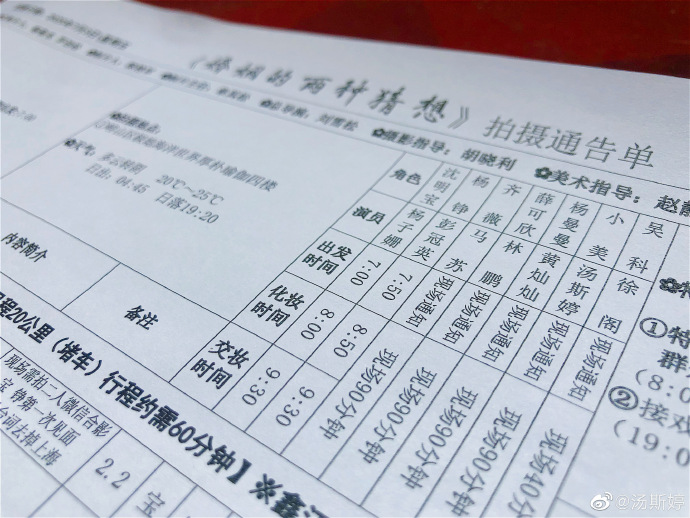 《婚姻的两种猜想》拍摄通告单
摄影指导：胡晓利 ✿美术指导：赵
20℃～25℃
日出：04:45 日落19:20
角色 沈明宝 杨铮 齐薇 薛可欣 杨曼曼 小美 吴科
演员 杨子姗 彭冠英 马苏 林鹏 黄灿灿 汤斯婷 徐阁
出发时间 7:00 7:50 现场通知 现场通知 现场通知 现场通知 现场通知
化妆时间 8:00 8:50 现场90分钟 现场90分钟 现场90分钟 现场90分钟 现场40分
交妆时间 9:30 9:30
内容简介 备注
程20公里（堵车）行程约需60分钟】※鑫
现场需拍二人微信合影
宝 铮第一次见面
台词去掉上海
2.2 宝
①特
群
(8:0
②接戏
(19:0
@汤斯婷